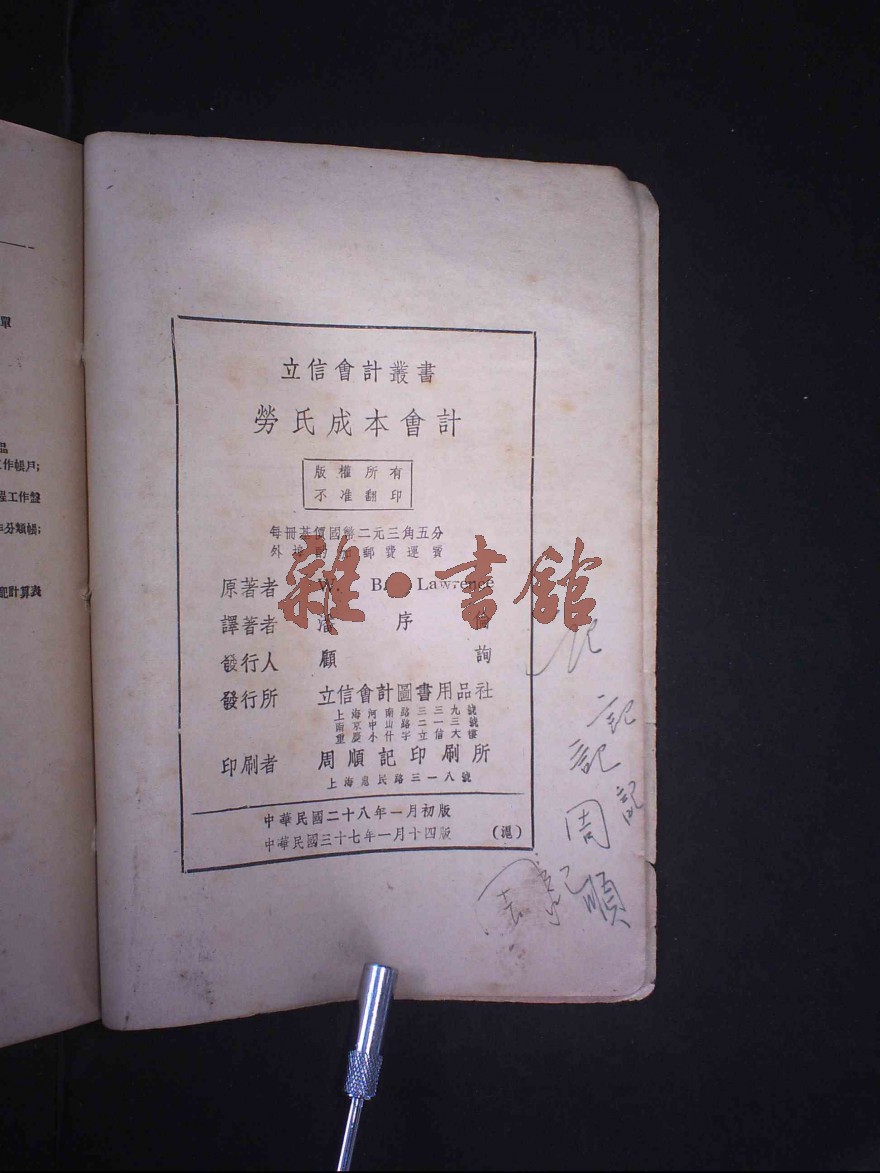 單
品
工作帳戶;
程工作盤
作分類帳;
配計算表
立信會計叢書
勞氏成本會計
版權所有
不准翻印
每冊基價國幣二元三角五分
外埠酌加郵費運費
原著者 W. B. Lawrence
譯著者 潘序倫
發行人 顧詢
發行所 立信會計圖書用品社
上海河南路三三九號
南京中山路二一三號
重慶小什字立信大樓
印刷者 周順記印刷所
上海惠民路三一八號
中華民國二十八年一月初版
中華民國三十七年一月十四版 (滬)
雜·書館
記
記
記
周
順